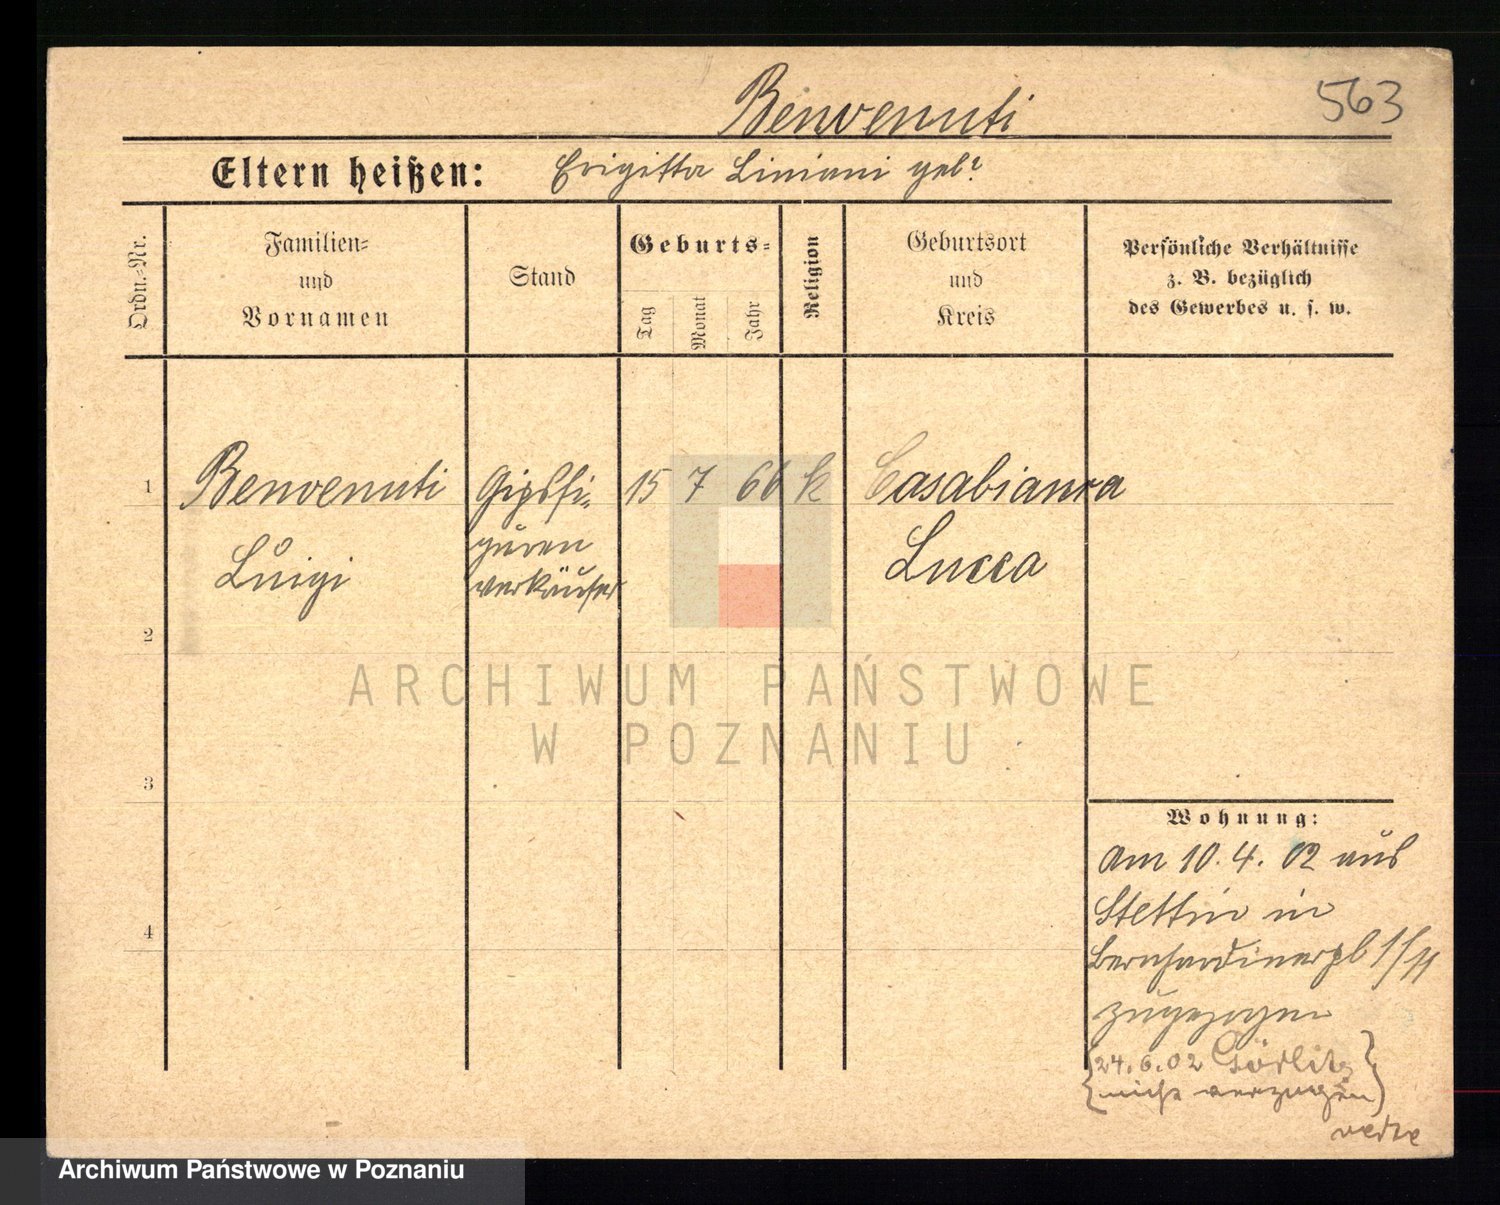 Benvenuti
563
Eltern heißen: Brigitta Liniani geb.
Ordn.-Nr.
Familien-
und
Vornamen
Stand
Geburts-
Tag
Monat
Jahr
Religion
Geburtsort
und
Kreis
Persönliche Verhältnisse
z. B. bezüglich
des Gewerbes u. s. w.
1 Benvenuti Gipsfi- 15 7 66 k Casabianca
Luigi guren Lucca
verkäufer
2
3
4
Wohnung:
am 10.4.02 aus
Stettin in
Bernhardinerpl 1/11
zugezogen
24.6.02 Görlitz
nicht verzogen
ARCHIWUM PAŃSTWOWE
W POZNANIU
Archiwum Państwowe w Poznaniu